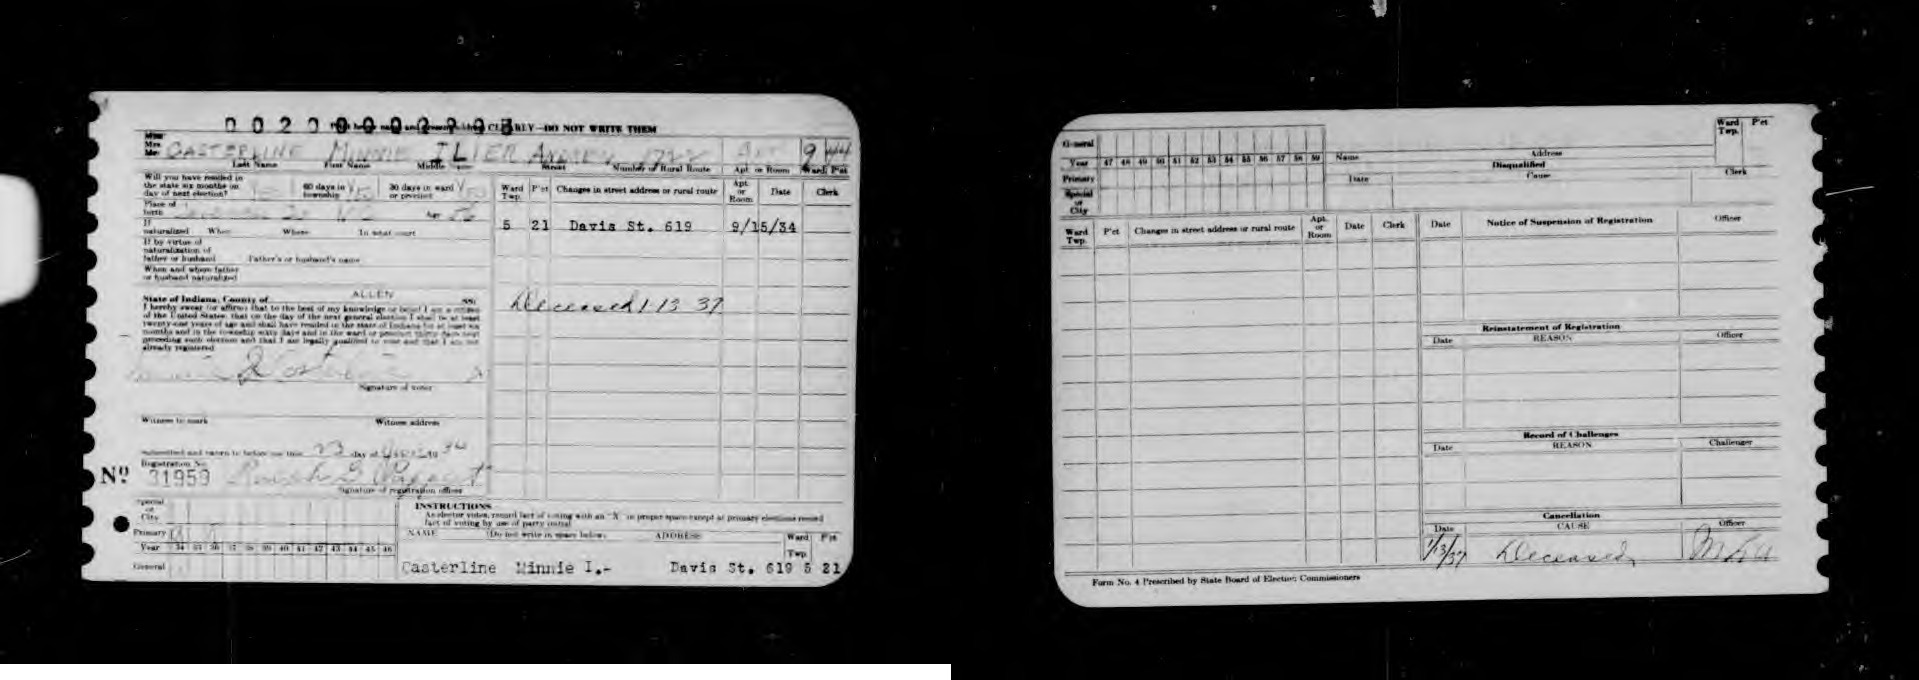 CLEARLY—DO NOT WRITE THEM
Miss
Mrs.
Mr. CASTERLINE MINNIE ILIER ANDREW 1722 9 44
Last Name First Name Middle Name Street Number or Rural Route Apt. or Room Ward P'ct
Will you have resided in
the state six months on
day of next election? 60 days in
township Yes 30 days in ward
or precinct Yes
Place of
birth Age
If
naturalized When Where In what court
If by virtue of
naturalization of
father or husband Father's or husband's name
When and where father
or husband naturalized
State of Indiana, County of ALLEN SS:
I hereby swear (or affirm) that to the best of my knowledge or belief I am a citizen
of the United States; that on the day of the next general election I shall be at least
twenty-one years of age and shall have resided in the state of Indiana for at least six
months and in the township sixty days and in the ward or precinct thirty days next
preceding such election and that I am legally qualified to vote and that I am not
already registered
Signature of voter
Witness to mark Witness address
Subscribed and sworn to before me this 23 day of 19 34
Registration No.
No. 31959
Signature of registration officer
Ward
Twp. P'ct Changes in street address or rural route Apt.
or
Room Date Clerk
5 21 Davis St. 619 9/15/34
Deceased 1-13 37
Special
or
City
Primary
Year 34 35 36 37 38 39 40 41 42 43 44 45 46
General
INSTRUCTIONS
As elector votes, record fact of voting with an "X" in proper space except at primary elections record
fact of voting by use of party initial
NAME (Do not write in space below) ADDRESS Ward
Twp. P'ct
Casterline Minnie I.- Davis St. 619 5 21
General
Year 47 48 49 50 51 52 53 54 55 56 57 58 59
Primary
Special
or
City
Name Address Ward
Twp. P'ct
Disqualified
Date Cause Clerk
Ward
Twp. P'ct Changes in street address or rural route Apt.
or
Room Date Clerk
Date Notice of Suspension of Registration Officer
Reinstatement of Registration
Date REASON Officer
Record of Challenges
Date REASON Challenger
Cancellation
Date CAUSE Officer
1/13/37 Deceased
Form No. 4 Prescribed by State Board of Election Commissioners